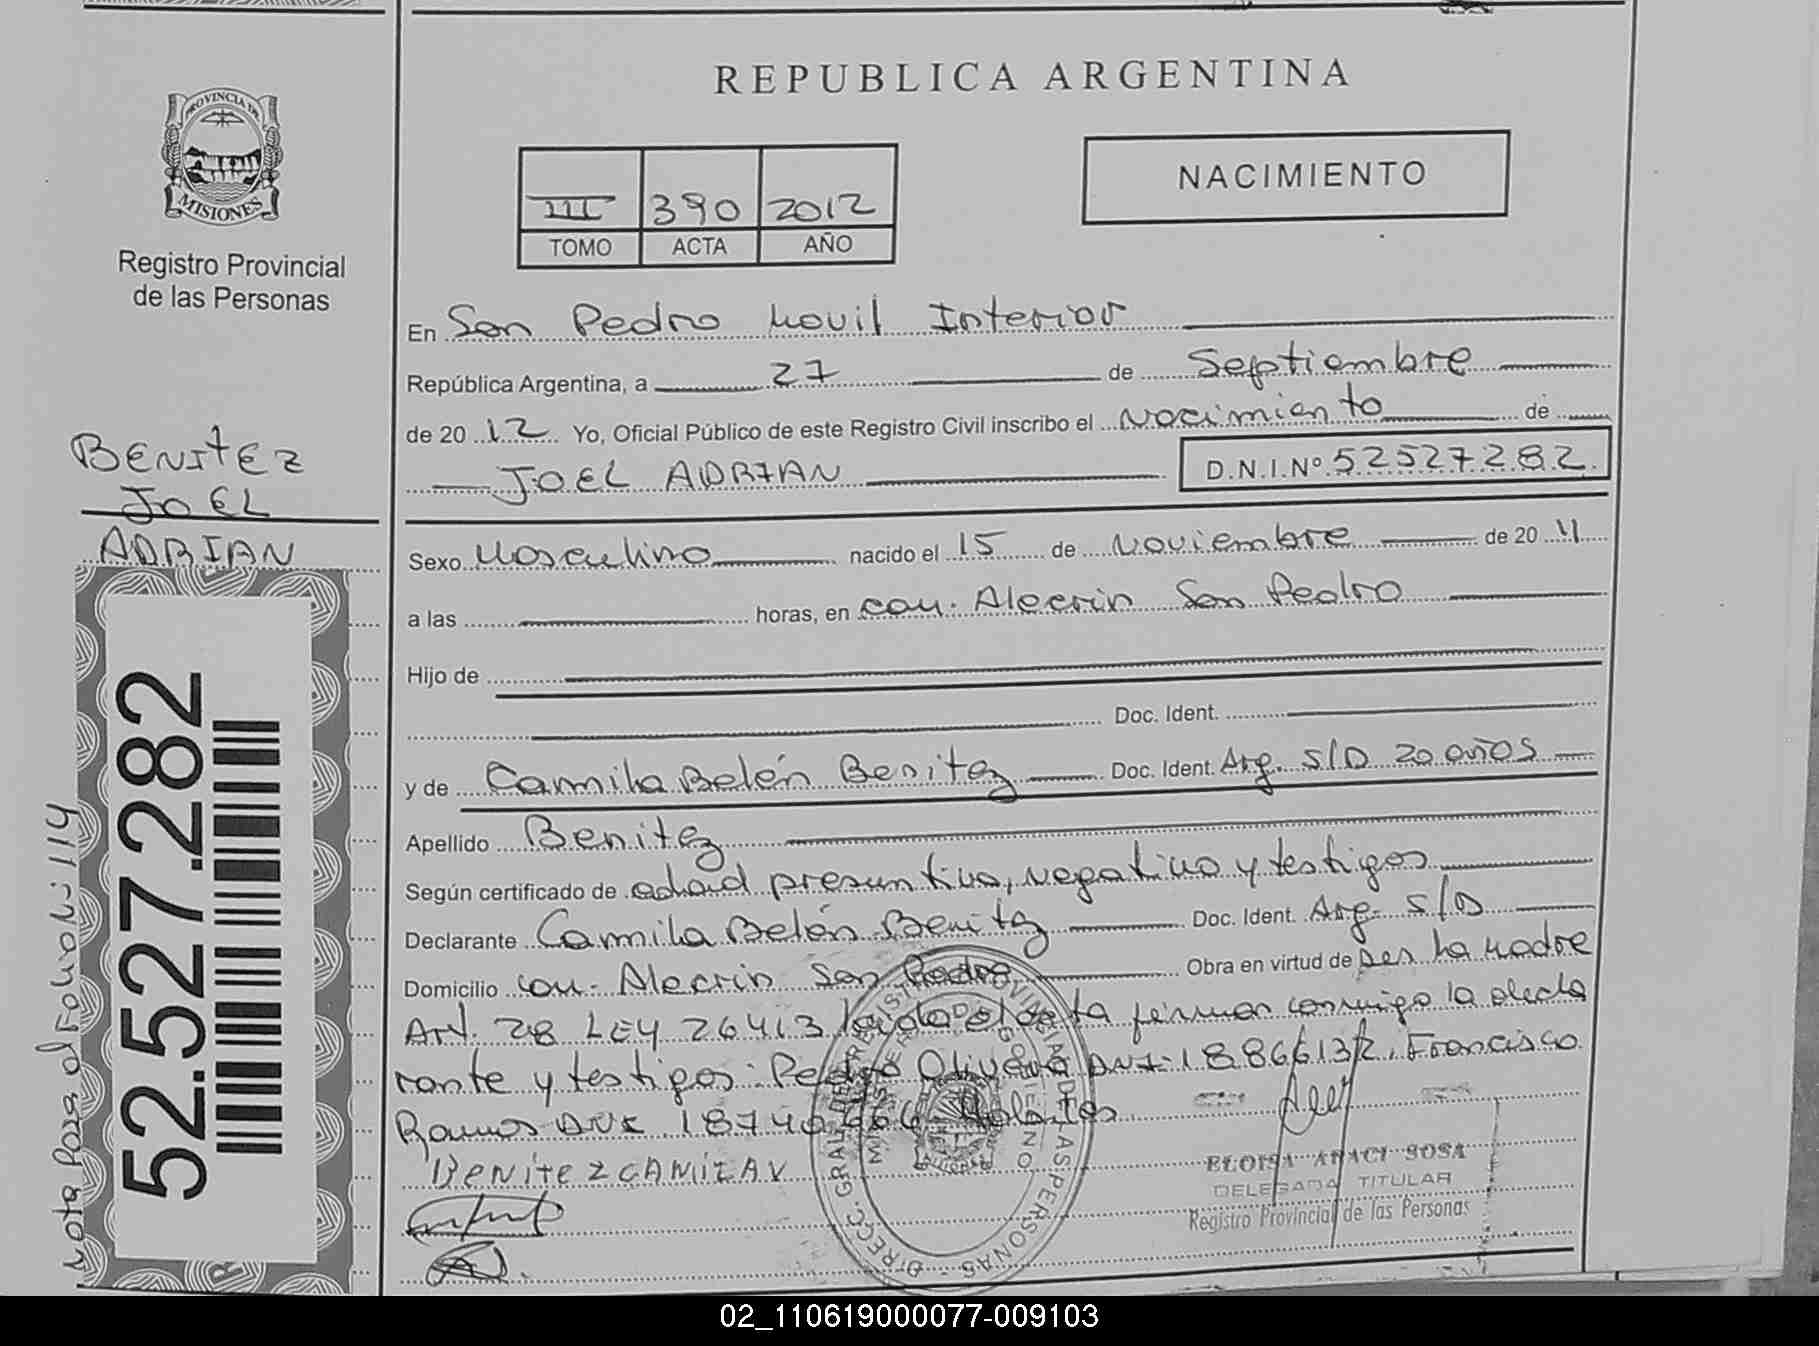 REPUBLICA ARGENTINA
NACIMIENTO
PROVINCIA DE
MISIONES
Registro Provincial
de las Personas
III 390 2012
TOMO ACTA AÑO
En San Pedro Movil Interior
República Argentina, a 27 de Septiembre
de 20 12 Yo, Oficial Público de este Registro Civil inscribo el Nacimiento de
JOEL ADRIAN D.N.I.Nº 52527282
BENITEZ
JOEL
ADRIAN
Sexo Masculino nacido el 15 de Noviembre de 20 11
a las horas, en Alecrin San Pedro
Hijo de
Doc. Ident.
y de Camila Belén Benitez Doc. Ident. Arg. S/D 20 años
Apellido Benitez
Según certificado de edad presuntiva, negativo y testigos
Declarante Camila Belén Benitez Doc. Ident. Arg. S/D
Domicilio Alecrin San Pedro Obra en virtud de ser la madre
Art. 28 LEY 26413 leida el acta firman conmigo la decla
rante y testigos: Pedro Olivera DNI 18866132, Francisco
Ramos DNI
BENITEZ CAMILA
ELOISA ARACI SOSA
DELEGADA TITULAR
Registro Provincial de las Personas
52.527.282
Nota Pasa al Folio Nº 114
02_110619000077-009103